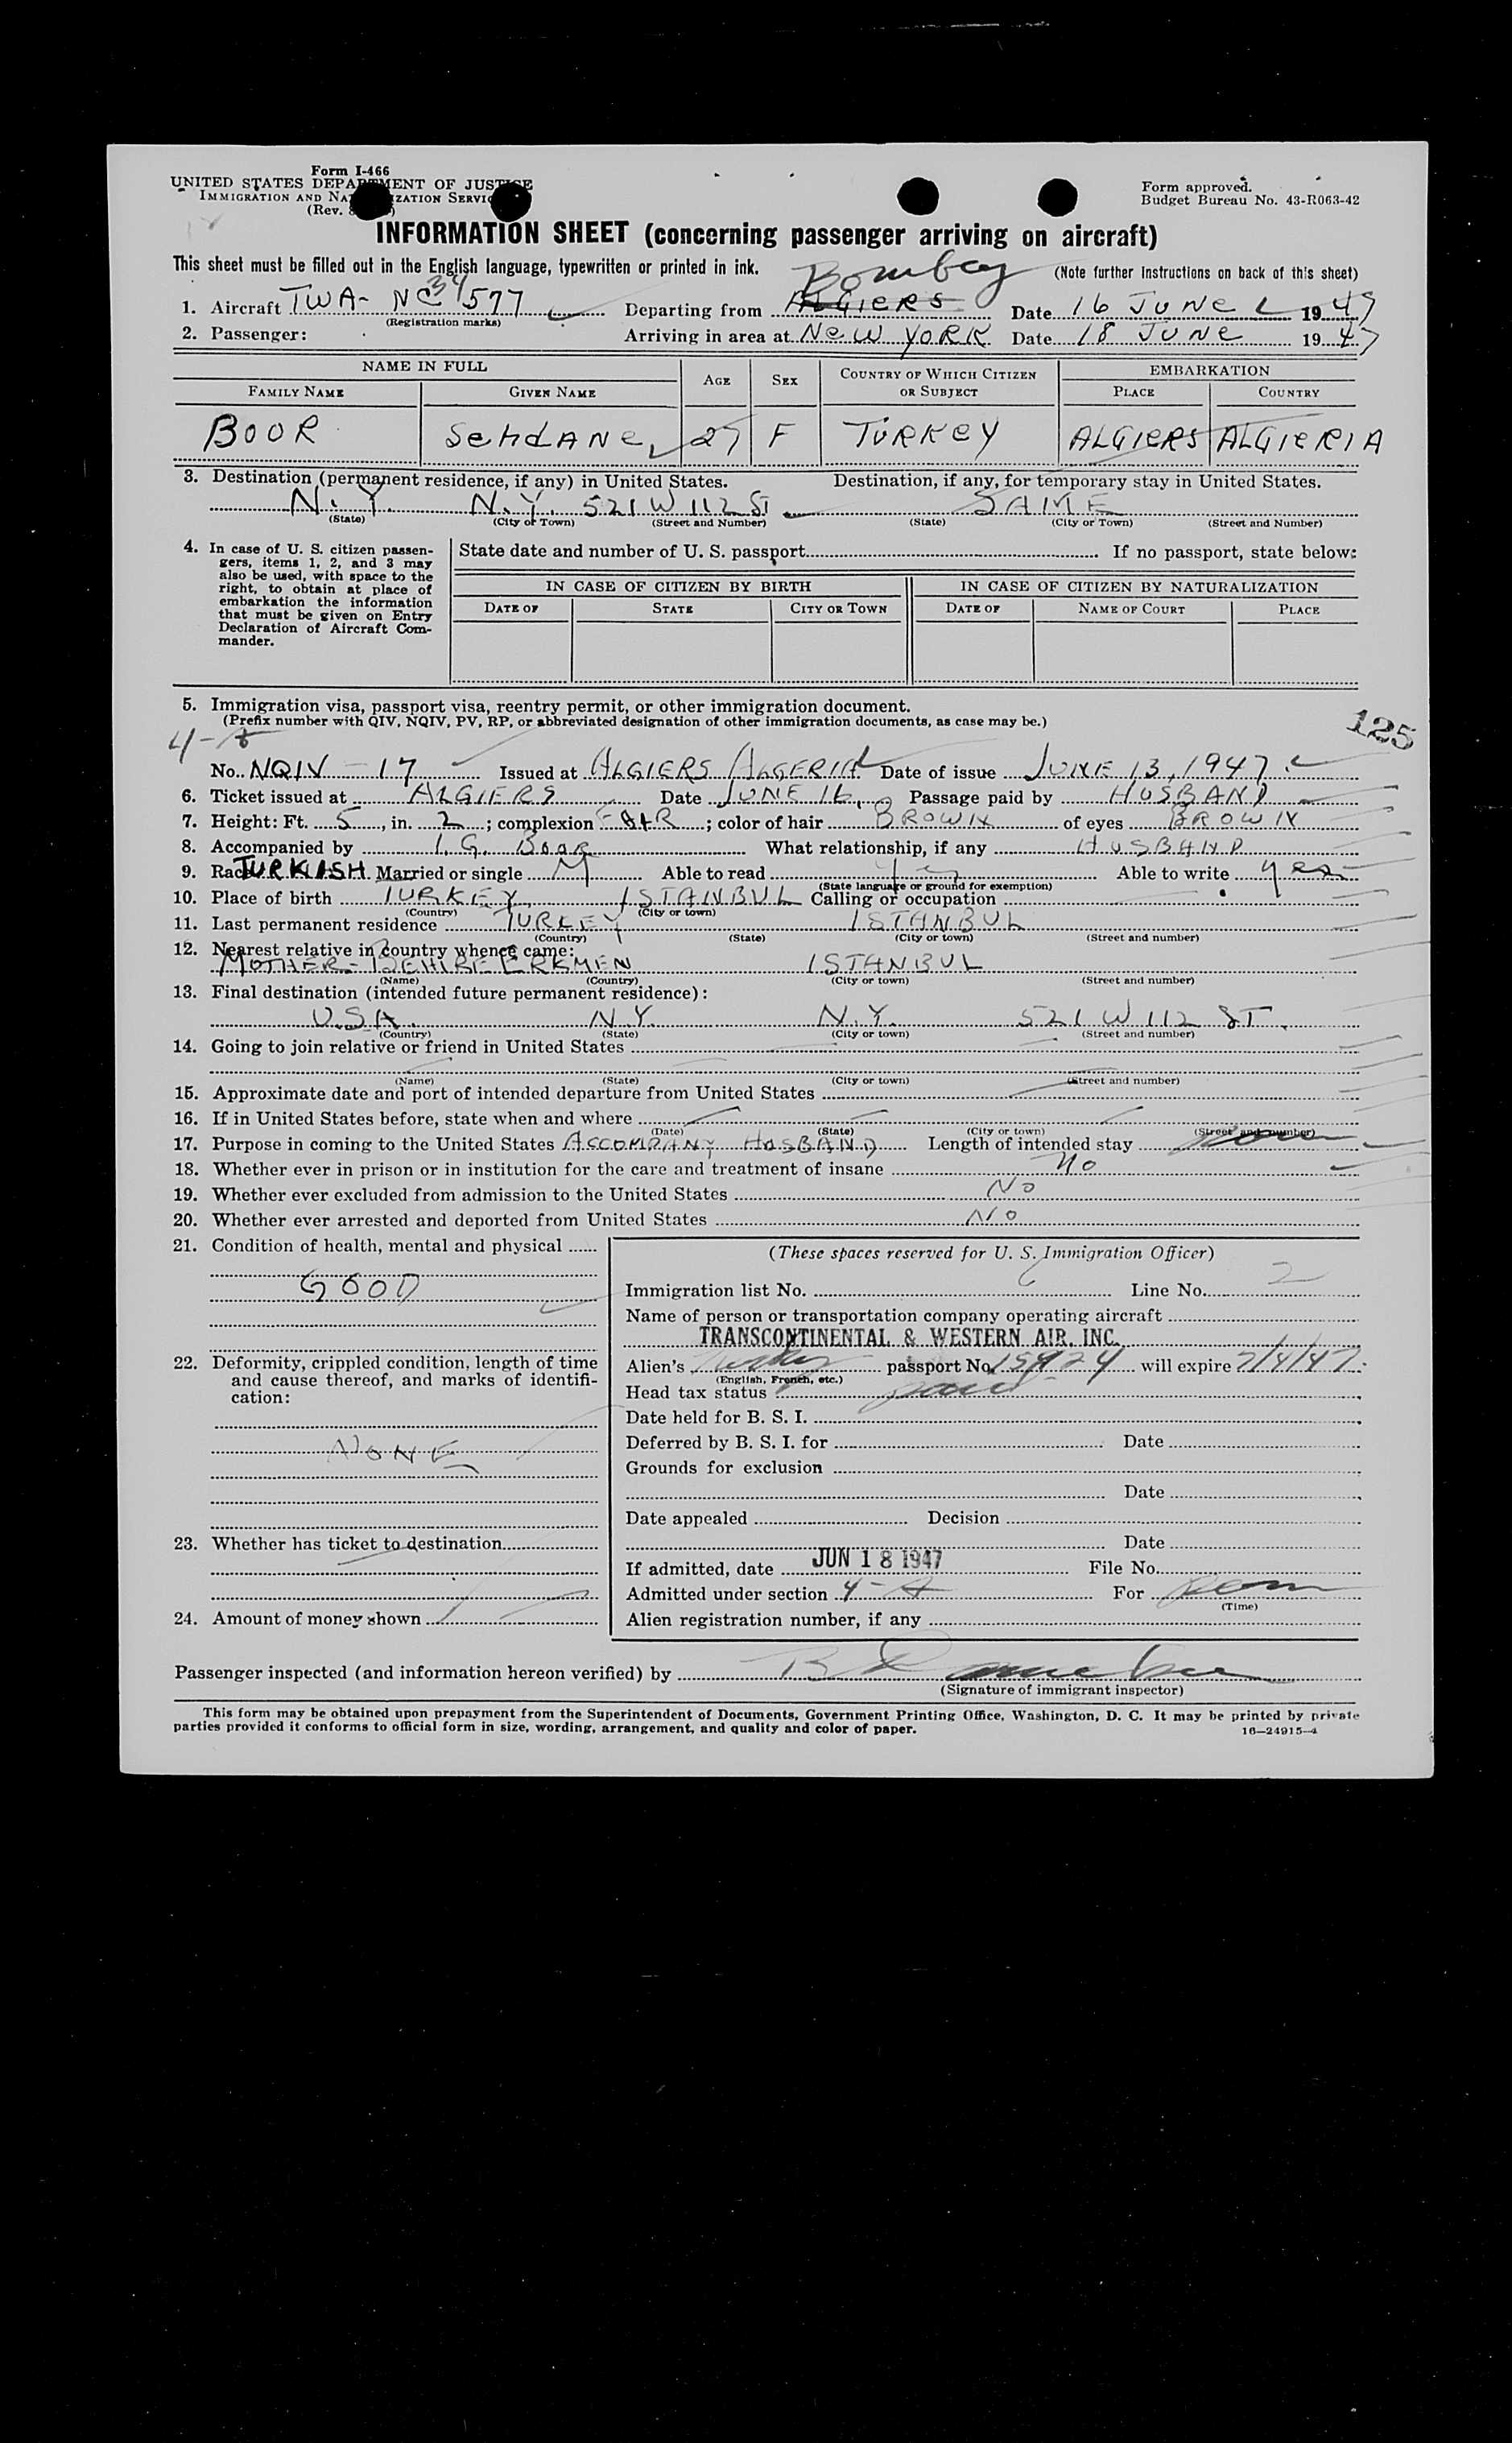 Form I-466
UNITED STATES DEPARTMENT OF JUSTICE
IMMIGRATION AND NATURALIZATION SERVICE
(Rev.
Form approved.
Budget Bureau No. 43-R063-42
INFORMATION SHEET (concerning passenger arriving on aircraft)
This sheet must be filled out in the English language, typewritten or printed in ink.
Bombay
(Note further instructions on back of this sheet)
1. Aircraft TWA- NC 34577 Departing from ALGIERS Date 16 JUNE 1947
(Registration marks)
2. Passenger: Arriving in area at NEW YORK Date 18 JUNE 1947
NAME IN FULL AGE SEX COUNTRY OF WHICH CITIZEN OR SUBJECT EMBARKATION
FAMILY NAME GIVEN NAME PLACE COUNTRY
BOOR SeHdANe 27 F TURKEY ALGIERS ALGIERIA
3. Destination (permanent residence, if any) in United States. Destination, if any, for temporary stay in United States.
N.Y. N.Y. 521 W 112 ST SAME
(State) (City or Town) (Street and Number) (State) (City or Town) (Street and Number)
4. In case of U. S. citizen passengers, items 1, 2, and 3 may also be used, with space to the right, to obtain at place of embarkation the information that must be given on Entry Declaration of Aircraft Commander.
State date and number of U. S. passport If no passport, state below:
IN CASE OF CITIZEN BY BIRTH IN CASE OF CITIZEN BY NATURALIZATION
DATE OF STATE CITY OR TOWN DATE OF NAME OF COURT PLACE
5. Immigration visa, passport visa, reentry permit, or other immigration document.
(Prefix number with QIV, NQIV, PV, RP, or abbreviated designation of other immigration documents, as case may be.)
125
No. NQIV - 17 Issued at ALGIERS ALGERIA Date of issue JUNE 13, 1947
6. Ticket issued at ALGIERS Date JUNE 16, Passage paid by HUSBAND
7. Height: Ft. 5, in. 2; complexion FAIR; color of hair BROWN of eyes BROWN
8. Accompanied by I. G. BOOR What relationship, if any HUSBAND
9. Race TURKISH Married or single M Able to read yes Able to write yes
(State language or ground for exemption)
10. Place of birth TURKEY ISTANBUL Calling or occupation
(Country) (City or town)
11. Last permanent residence TURKEY ISTANBUL
(Country) (State) (City or town) (Street and number)
12. Nearest relative in country whence came:
MOTHER - BEHIRE ERKMEN ISTANBUL
(Name) (Country) (City or town) (Street and number)
13. Final destination (intended future permanent residence):
U.S.A. N.Y. N.Y. 521 W 112 ST.
(Country) (State) (City or town) (Street and number)
14. Going to join relative or friend in United States
(Name) (State) (City or town) (Street and number)
15. Approximate date and port of intended departure from United States
16. If in United States before, state when and where
(Date) (State) (City or town) (Street and number)
17. Purpose in coming to the United States ACCOMPANY HUSBAND Length of intended stay
18. Whether ever in prison or in institution for the care and treatment of insane No
19. Whether ever excluded from admission to the United States No
20. Whether ever arrested and deported from United States No
21. Condition of health, mental and physical
GOOD
22. Deformity, crippled condition, length of time and cause thereof, and marks of identification:
NONE
23. Whether has ticket to destination
24. Amount of money shown
(These spaces reserved for U. S. Immigration Officer)
Immigration list No. 6 Line No. 2
Name of person or transportation company operating aircraft
TRANSCONTINENTAL & WESTERN AIR, INC.
Alien's passport No. 15924 will expire 7/4/47
(English, French, etc.)
Head tax status
Date held for B. S. I.
Deferred by B. S. I. for Date
Grounds for exclusion
Date
Date appealed Decision
Date
If admitted, date JUN 18 1947 File No.
Admitted under section 4-A For perm
(Time)
Alien registration number, if any
Passenger inspected (and information hereon verified) by
(Signature of immigrant inspector)
This form may be obtained upon prepayment from the Superintendent of Documents, Government Printing Office, Washington, D. C. It may be printed by private
parties provided it conforms to official form in size, wording, arrangement, and quality and color of paper.
16—24915-4